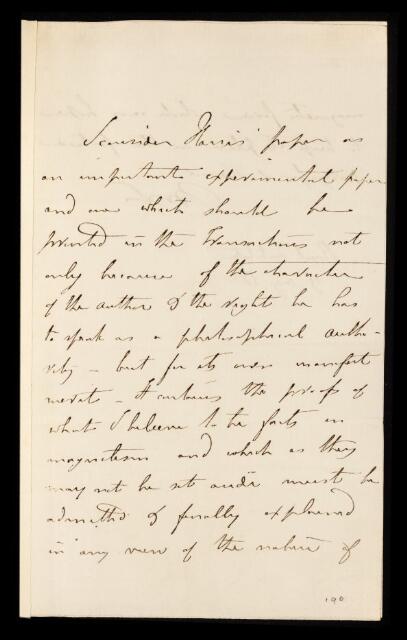 I consider Harris' paper as
an important experimental paper
and one which should be
printed in the Transactions not
only because of the character
of the author & the right he has
to speak as a philosophical autho-
rity - but for its own manifest
merits - It contains the proofs of
what I believe to be facts in
magnetism and which as they
may not be set aside must be
admitted & finally explained
in any view of the nature of
190